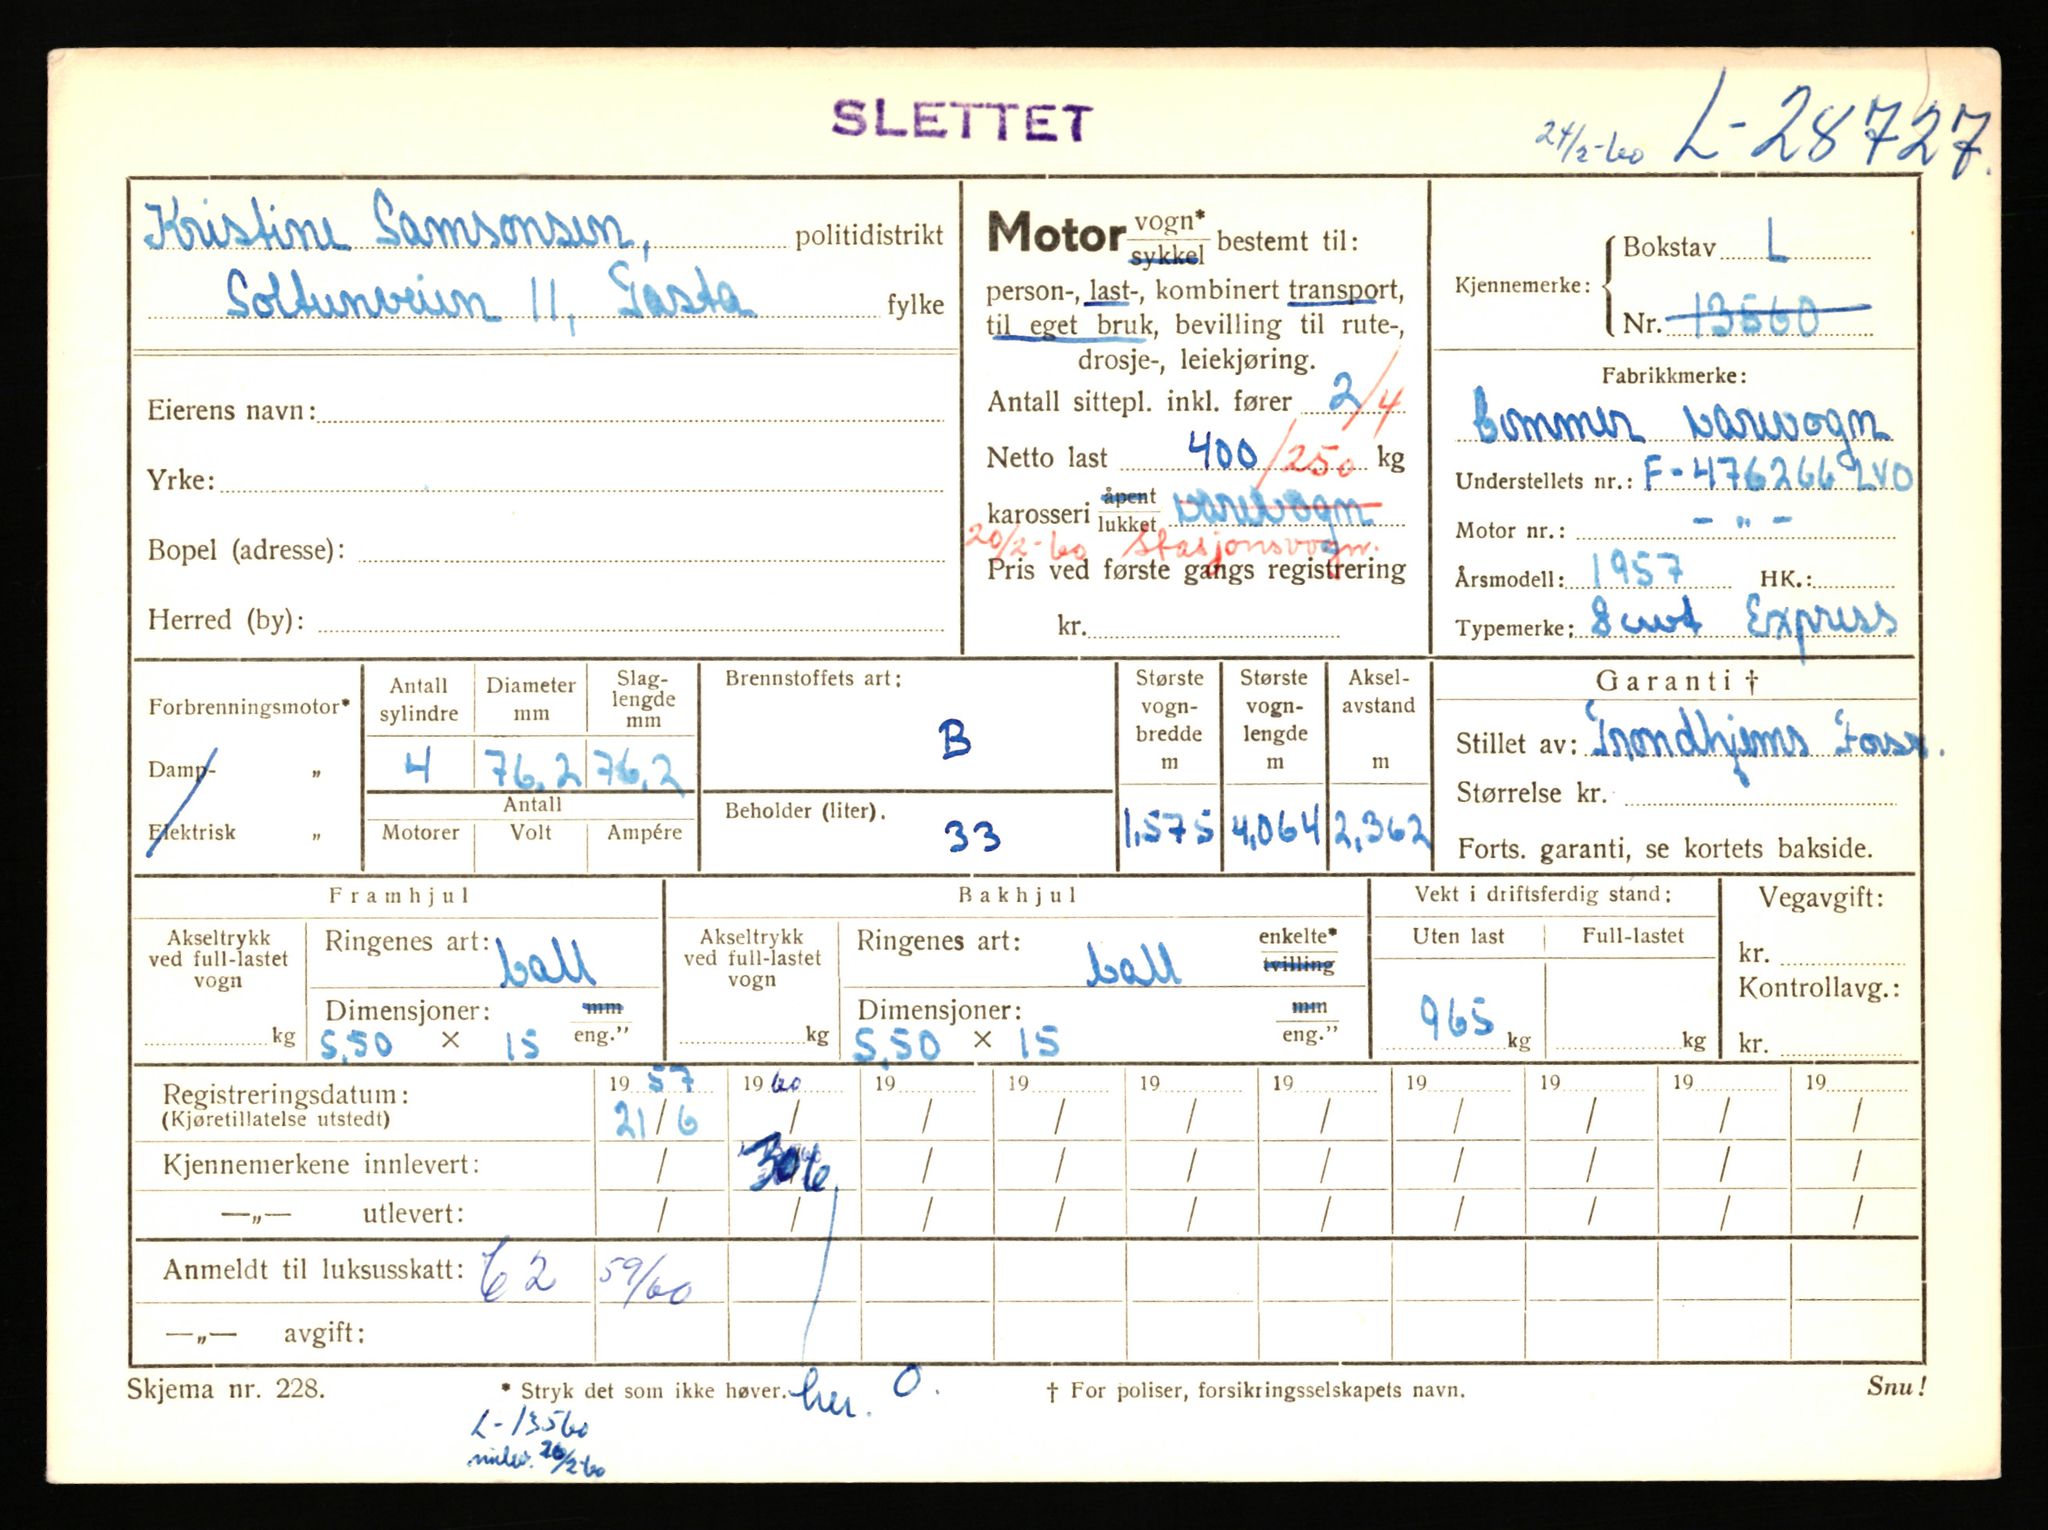 SLETTET
24/2-60 L-28727.
Kristine Samsonsen, politidistrikt
Soltunveien 11, Tasta fylke
Eierens navn:
Yrke:
Bopel (adresse):
Herred (by):
Motor vogn* sykkel bestemt til:
person-, last-, kombinert transport,
til eget bruk, bevilling til rute-,
drosje-, leiekjøring.
Antall sittepl. inkl. fører 2/4
Netto last 400/250 kg
karosseri åpent lukket varevogn
20/2-60 Stasjonsvogn.
Pris ved første gangs registrering
kr.
Kjennemerke: Bokstav L
Nr. 13560
Fabrikkmerke:
Commer varevogn
Understellets nr.: F-476266 LVO
Motor nr.: - " -
Årsmodell: 1957 HK.:
Typemerke: 8 cwt Express
Forbrenningsmotor*
Damp- „
Elektrisk „
Antall sylindre Diameter mm Slag-lengde mm
4 76,2 76,2
Antall
Motorer Volt Ampére
Brennstoffets art:
B
Beholder (liter).
33
Største vogn-bredde m
1,575
Største vogn-lengde m
4,064
Aksel-avstand m
2,362
Garanti †
Stillet av: Trondhjems Fors.
Størrelse kr.
Forts. garanti, se kortets bakside.
Framhjul
Akseltrykk ved full-lastet vogn
kg
Ringenes art: ball
Dimensjoner: mm
5,50 x 15 eng.”
Bakhjul
Akseltrykk ved full-lastet vogn
kg
Ringenes art: ball enkelte* tvilling
Dimensjoner: mm
5,50 x 15 eng.”
Vekt i driftsferdig stand:
Uten last Full-lastet
965 kg kg
Vegavgift:
kr.
Kontrollavg.:
kr.
Registreringsdatum: 19 57 19 60 19 19 19 19 19 19 19 19
(Kjøretillatelse utstedt) 21/6 / / / / / / / / /
Kjennemerkene innlevert: / 30/6 / / / / / / / /
—„— utlevert: / / / / / / / / / /
Anmeldt til luksusskatt: 62 59/60
—„— avgift:
Skjema nr. 228. * Stryk det som ikke høver. her. O. † For poliser, forsikringsselskapets navn. Snu!
L-13560
innlev. 20/2-60